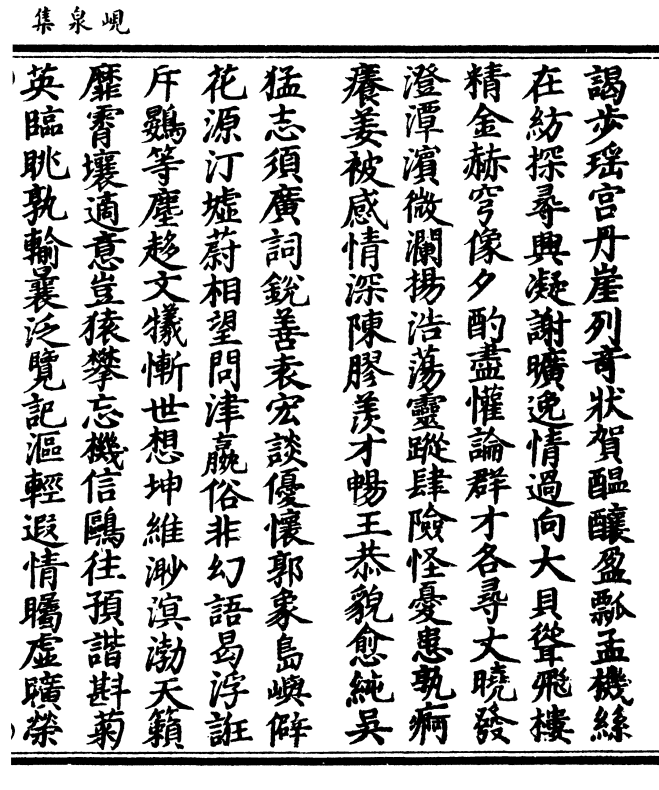 峴泉集
謁步瑶宫丹崖列竒狀賀醖釀盈瓢孟機絲
在紡探尋興凝謝曠逸情過向大貝聳飛樓
精金赫穹像夕酌盡懽論群才各尋丈曉發
澄潭濱微瀾揚浩蕩靈蹤肆險怪憂患孰痾
癢姜被感情深陳膠羨才暢王恭貌愈純吳
猛志須廣詞銳善袁宏談優懷郭象島嶼僻
花源汀墟蔚相望問津嬴俗非幻語曷浮誑
斥鷃等塵趍文犧慚世想坤維渺溟渤天籟
靡霄壤適意豈猿攀忘機信鷗往預諧斟菊
英臨眺孰輸曩泛覽記漚輕遐情矚虛曠榮